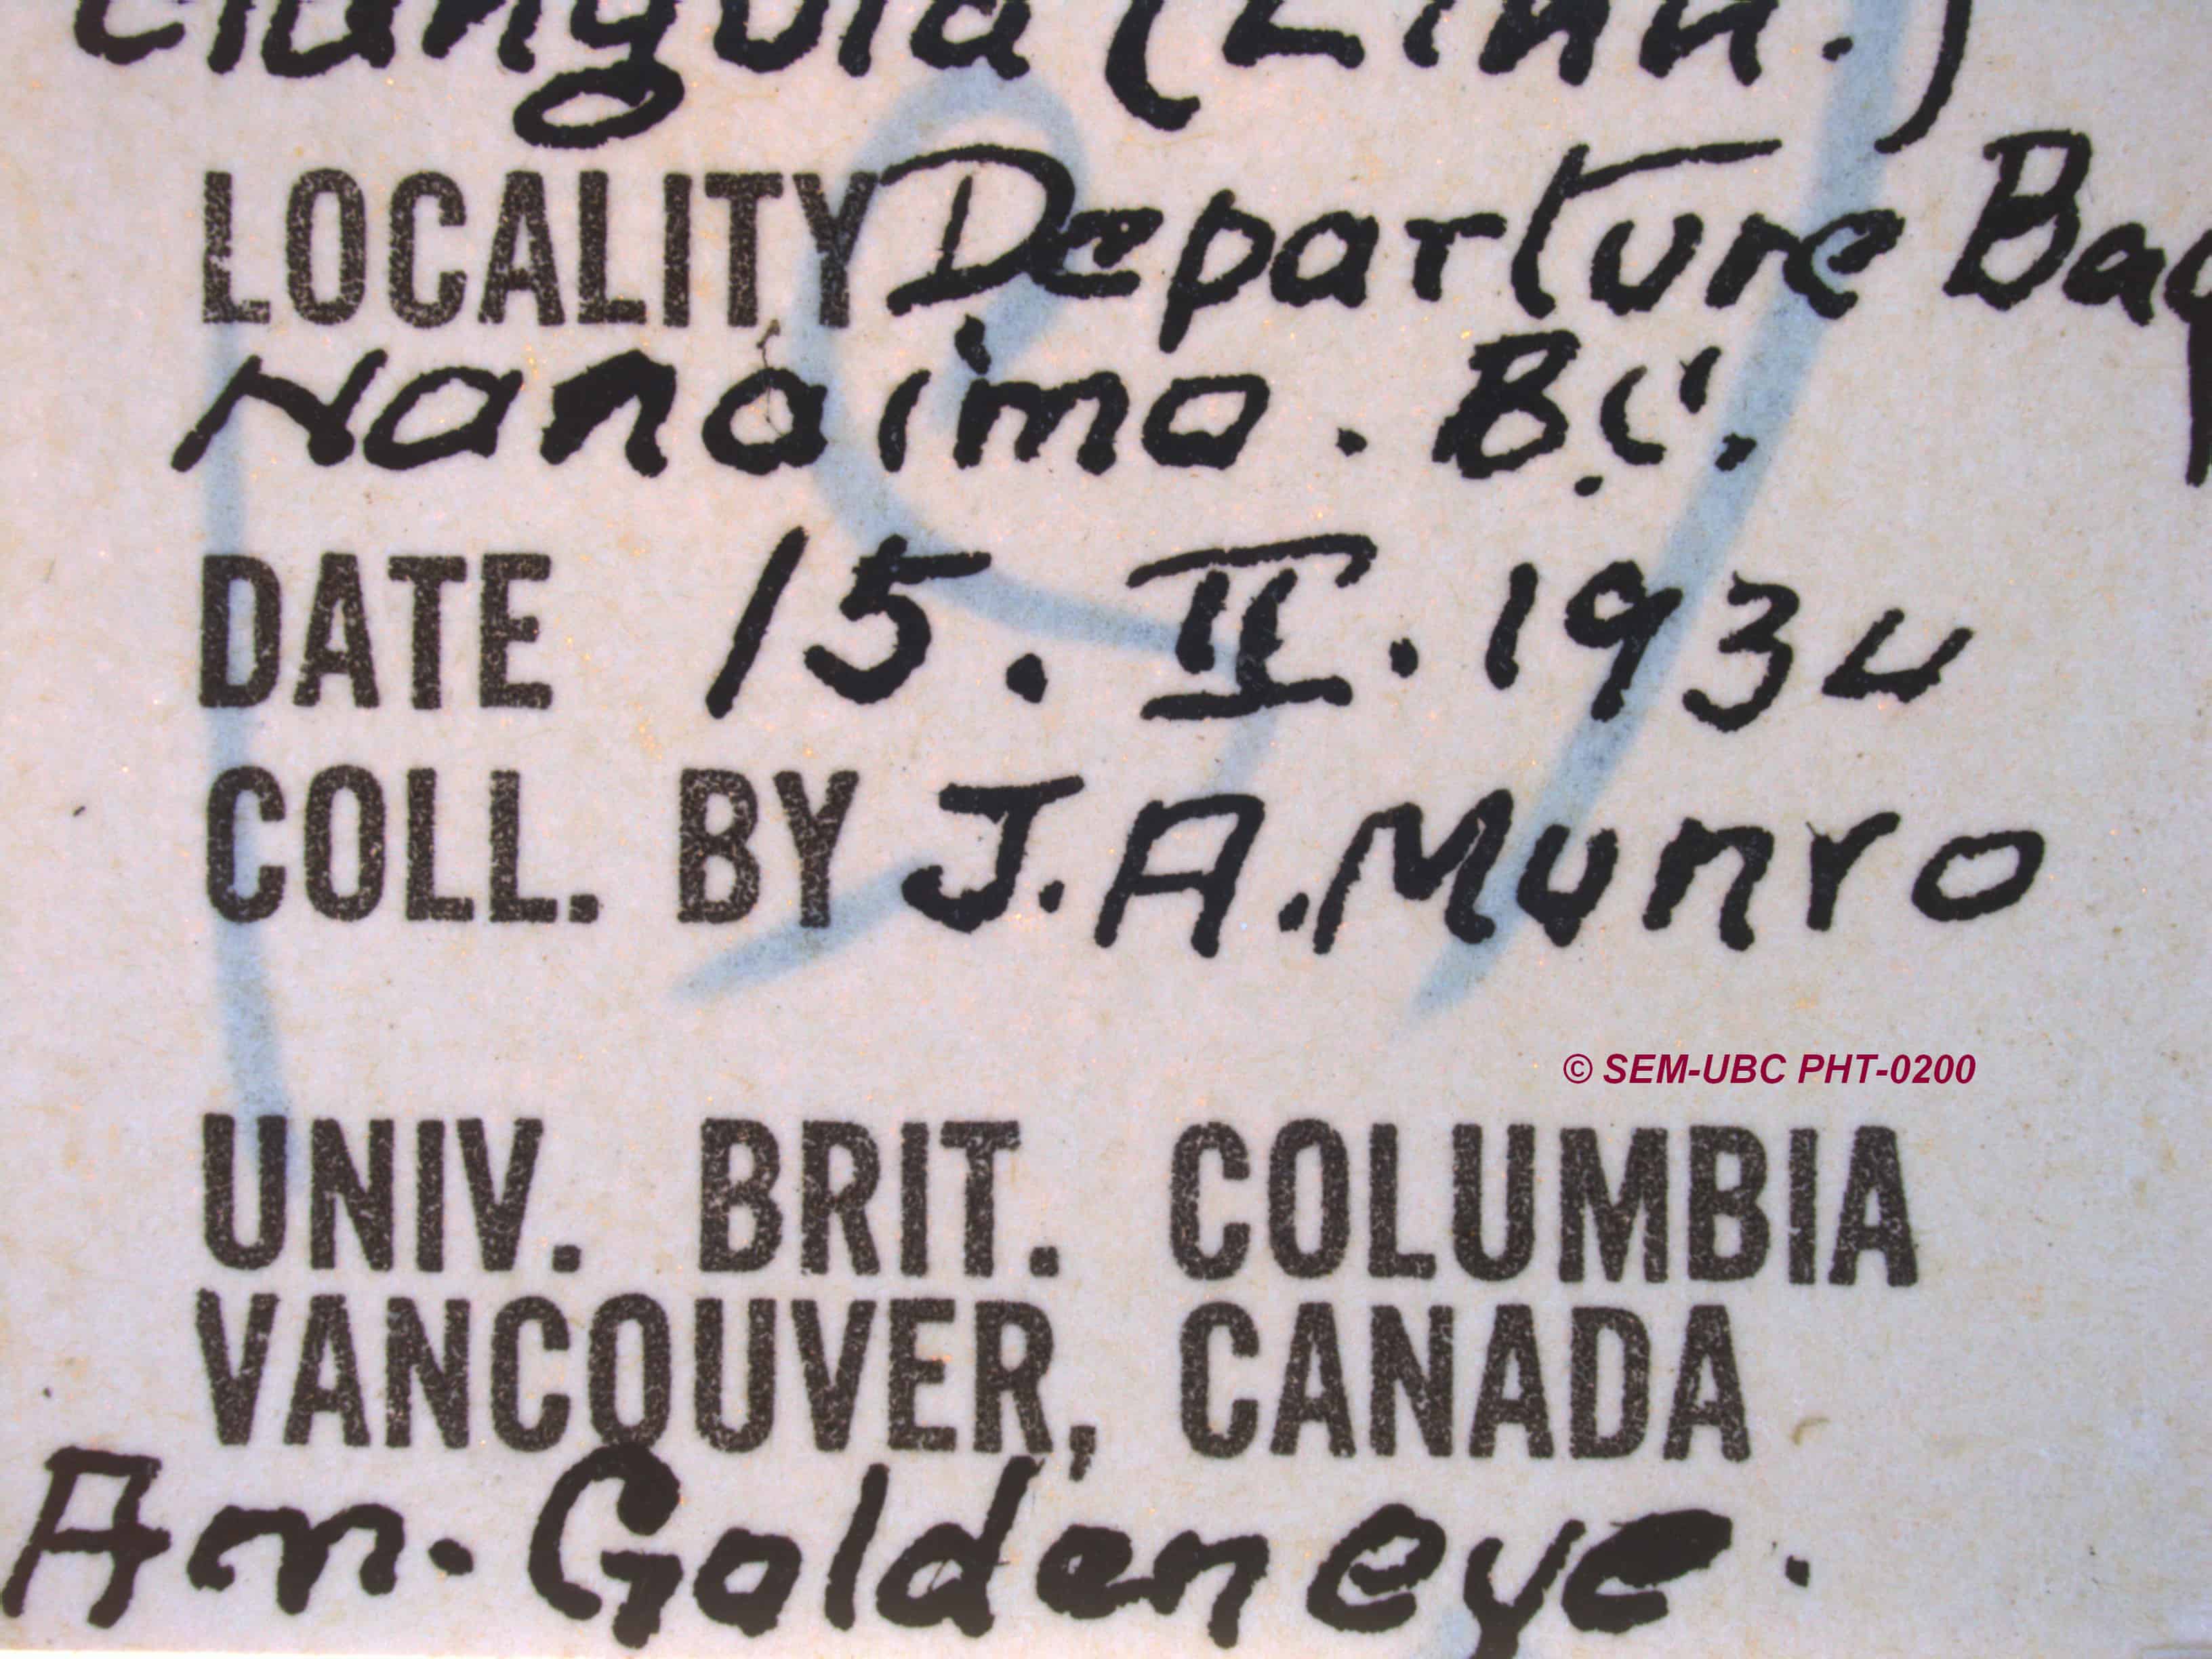 clangula (Linn.)
LOCALITY Departure Bay
Nanaimo. B.C.
DATE 15. II. 1934
COLL. BY J. A. Munro
© SEM-UBC PHT-0200
UNIV. BRIT. COLUMBIA
VANCOUVER, CANADA
Am. Goldeneye.